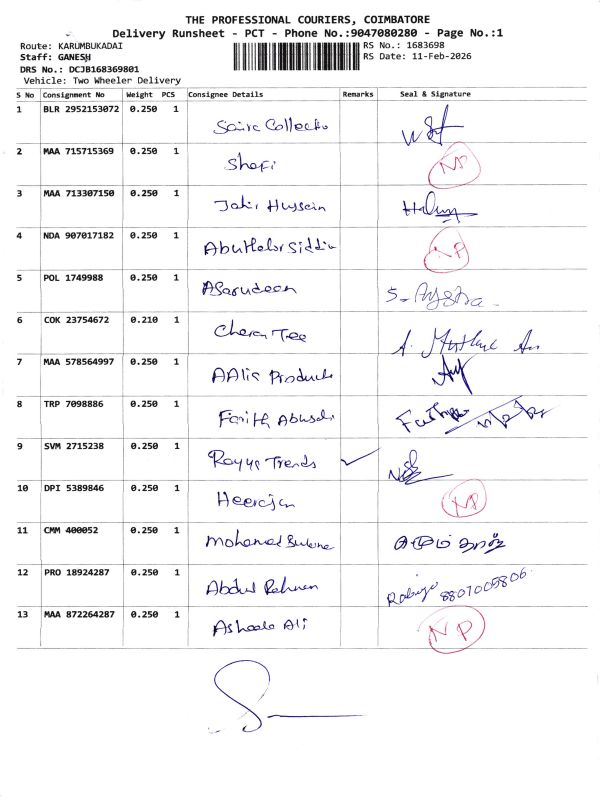 THE PROFESSIONAL COURIERS, COIMBATORE
Delivery Runsheet - PCT - Phone No.:9047080280 - Page No.:1
Route: KARUMBUKADAI RS No.: 1683698
Staff: GANESH RS Date: 11-Feb-2026
DRS No.: DCJB168369801
Vehicle: Two Wheeler Delivery
S No Consignment No Weight PCS Consignee Details Remarks Seal & Signature
1 BLR 2952153072 0.250 1
2 MAA 715715369 0.250 1 Shafi NP
3 MAA 713307150 0.250 1 Jakir Hussain
4 NDA 907017182 0.250 1 NP
5 POL 1749988 0.250 1 Asarudeen
6 COK 23754672 0.210 1 Cheran Tee
7 MAA 578564997 0.250 1
8 TRP 7098886 0.250 1
9 SVM 2715238 0.250 1 Trends ✓
10 DPI 5389846 0.250 1 NP
11 CMM 400052 0.250 1 Mohamed
12 PRO 18924287 0.250 1 Abdul Rehman 8807005806
13 MAA 872264287 0.250 1 Ali NP